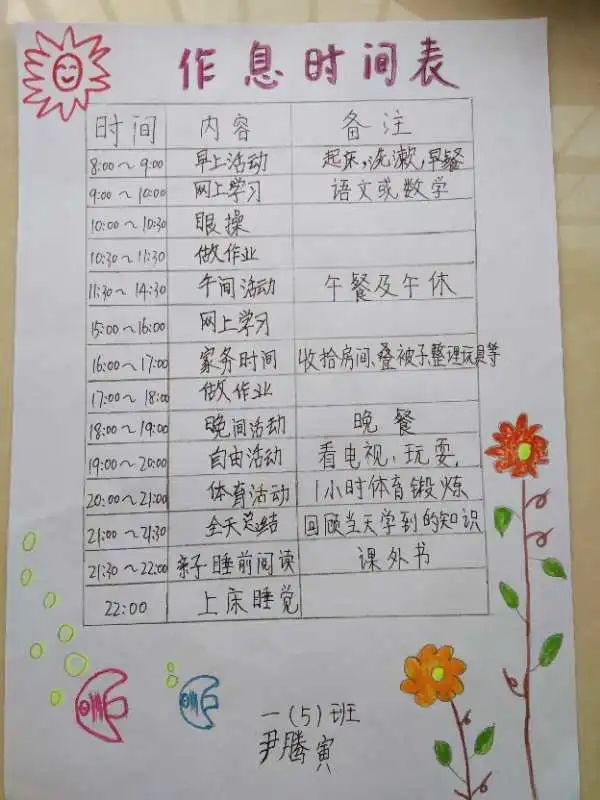 作息时间表
时间 内容 备注
8:00～9:00 早上活动 起床,洗漱,早餐
9:00～10:00 网上学习 语文或数学
10:00～10:30 眼操
10:30～11:30 做作业
11:30～14:30 午间活动 午餐及午休
15:00～16:00 网上学习
16:00～17:00 家务时间 收拾房间、叠被子,整理玩具等
17:00～18:00 做作业
18:00～19:00 晚间活动 晚餐
19:00～20:00 自由活动 看电视,玩耍,
20:00～21:00 体育活动 1小时体育锻炼
21:00～21:30 全天总结 回顾当天学到的知识
21:30～22:00 亲子睡前阅读 课外书
22:00 上床睡觉
一(5)班
尹腾寅